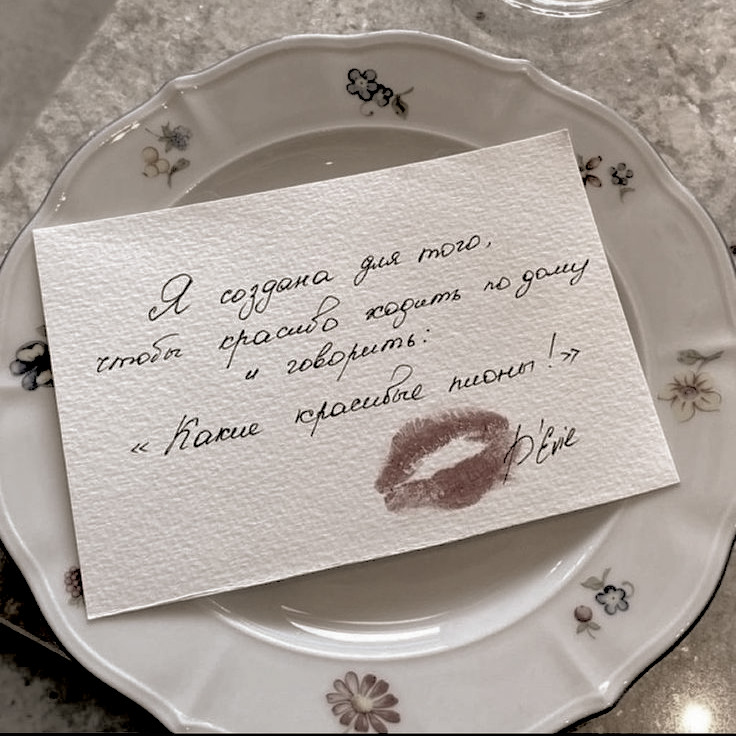 Я создана для того,
чтобы красиво ходить по дому
и говорить:
« Какие красивые пионы! »
D'Evie